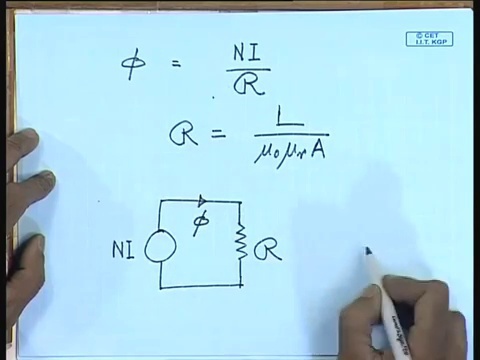 © CET
I.I.T. KGP
ϕ = NI / R
R = L / μ₀ μᵣ A
ϕ
NI
R